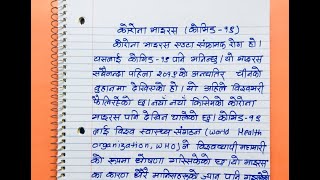 कोरोना भाइरस (कोभिड-१९)
कोरोना भाइरस एउटा संक्रामक रोग हो।
यसलाई कोभिड-१९ पनि भनिन्छ। यो भाइरस
सबैभन्दा पहिला २०१९ को अन्त्यतिर चीनको
वुहानमा देखिएको हो। यो अहिले विश्वभरी
फैलिएको छ। नयाँ नयाँ किसिमको कोरोना
भाइरस पनि देखिन थालेको छ। कोभिड-१९
लाई विश्व स्वास्थ्य संगठन (World Health
organization, WHO) ले विश्वव्यापी महामारी
को रूपमा घोषणा गरिसकेको छ। यो भाइरस
का कारण धेरै मानिसहरूको ज्यान पनि